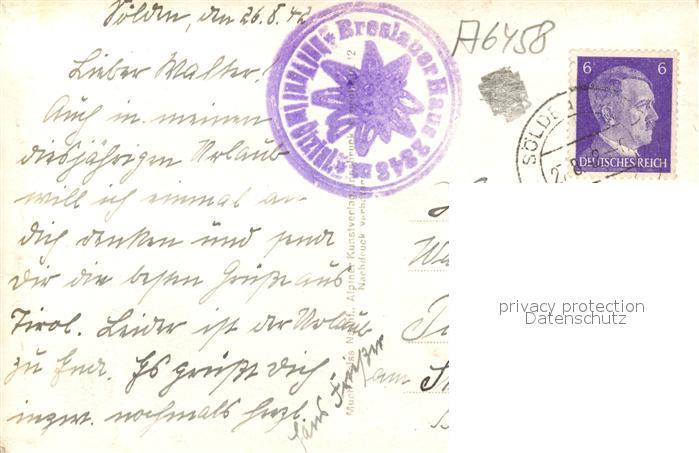 Sölden, den 26.8.42
Lieber Walter!
Auch in meinem
diesjährigen Urlaub
will ich einmal an
Dich denken und sende
Dir die besten Grüße aus
Tirol. Leider ist der Urlaub
zu Ende. Es grüßt Dich
nochmals herzl.
Breslauer Haus 2848 m
A6458
6 6
DEUTSCHES REICH
SÖLDE
Alpiner Kunstverlag
Nachdruck verboten
Wa
am
privacy protection
Datenschutz